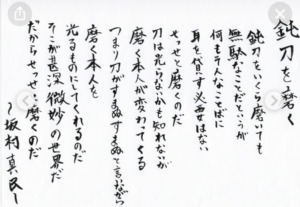 鈍刀を磨く
鈍刀をいくら磨いても
無駄なことだというが
何もそんなことばに
耳を貸す必要はない
せっせと磨くのだ
刀は光らないかも知れないが
磨く本人が変わってくる
つまり刀がすまぬすまぬと言いながら
磨く本人を
光るものにしてくれるのだ
そこが甚深微妙の世界だ
だからせっせと磨くのだ
〜坂村真民〜